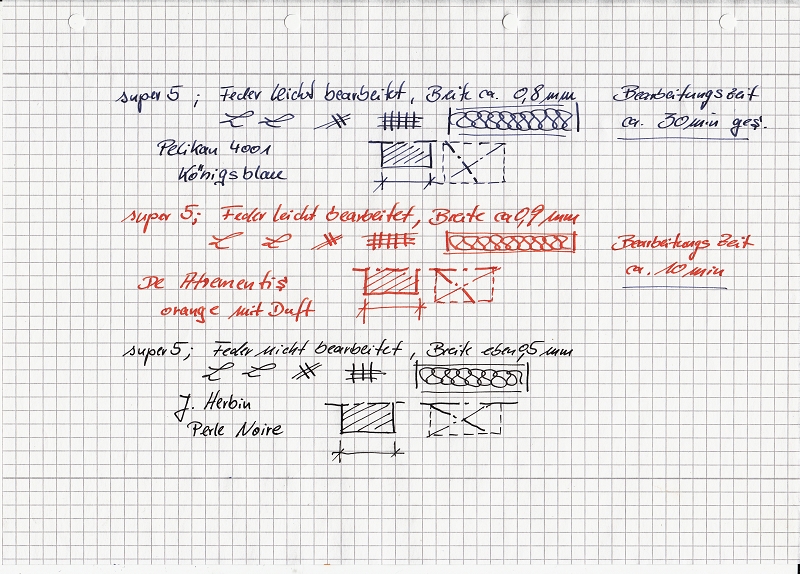 super 5 ; Feder leicht bearbeitet, Breite ca. 0,8 mm
Bearbeitungszeit
ca. 30 min ges.
Pelikan 4001
Königsblau
super 5; Feder leicht bearbeitet, Breite ca 0,9 mm
Bearbeitungszeit
ca. 10 min
De Atrementis
orange mit Duft
super 5; Feder nicht bearbeitet, Breite eben 0,5 mm
J. Herbin
Perle Noire